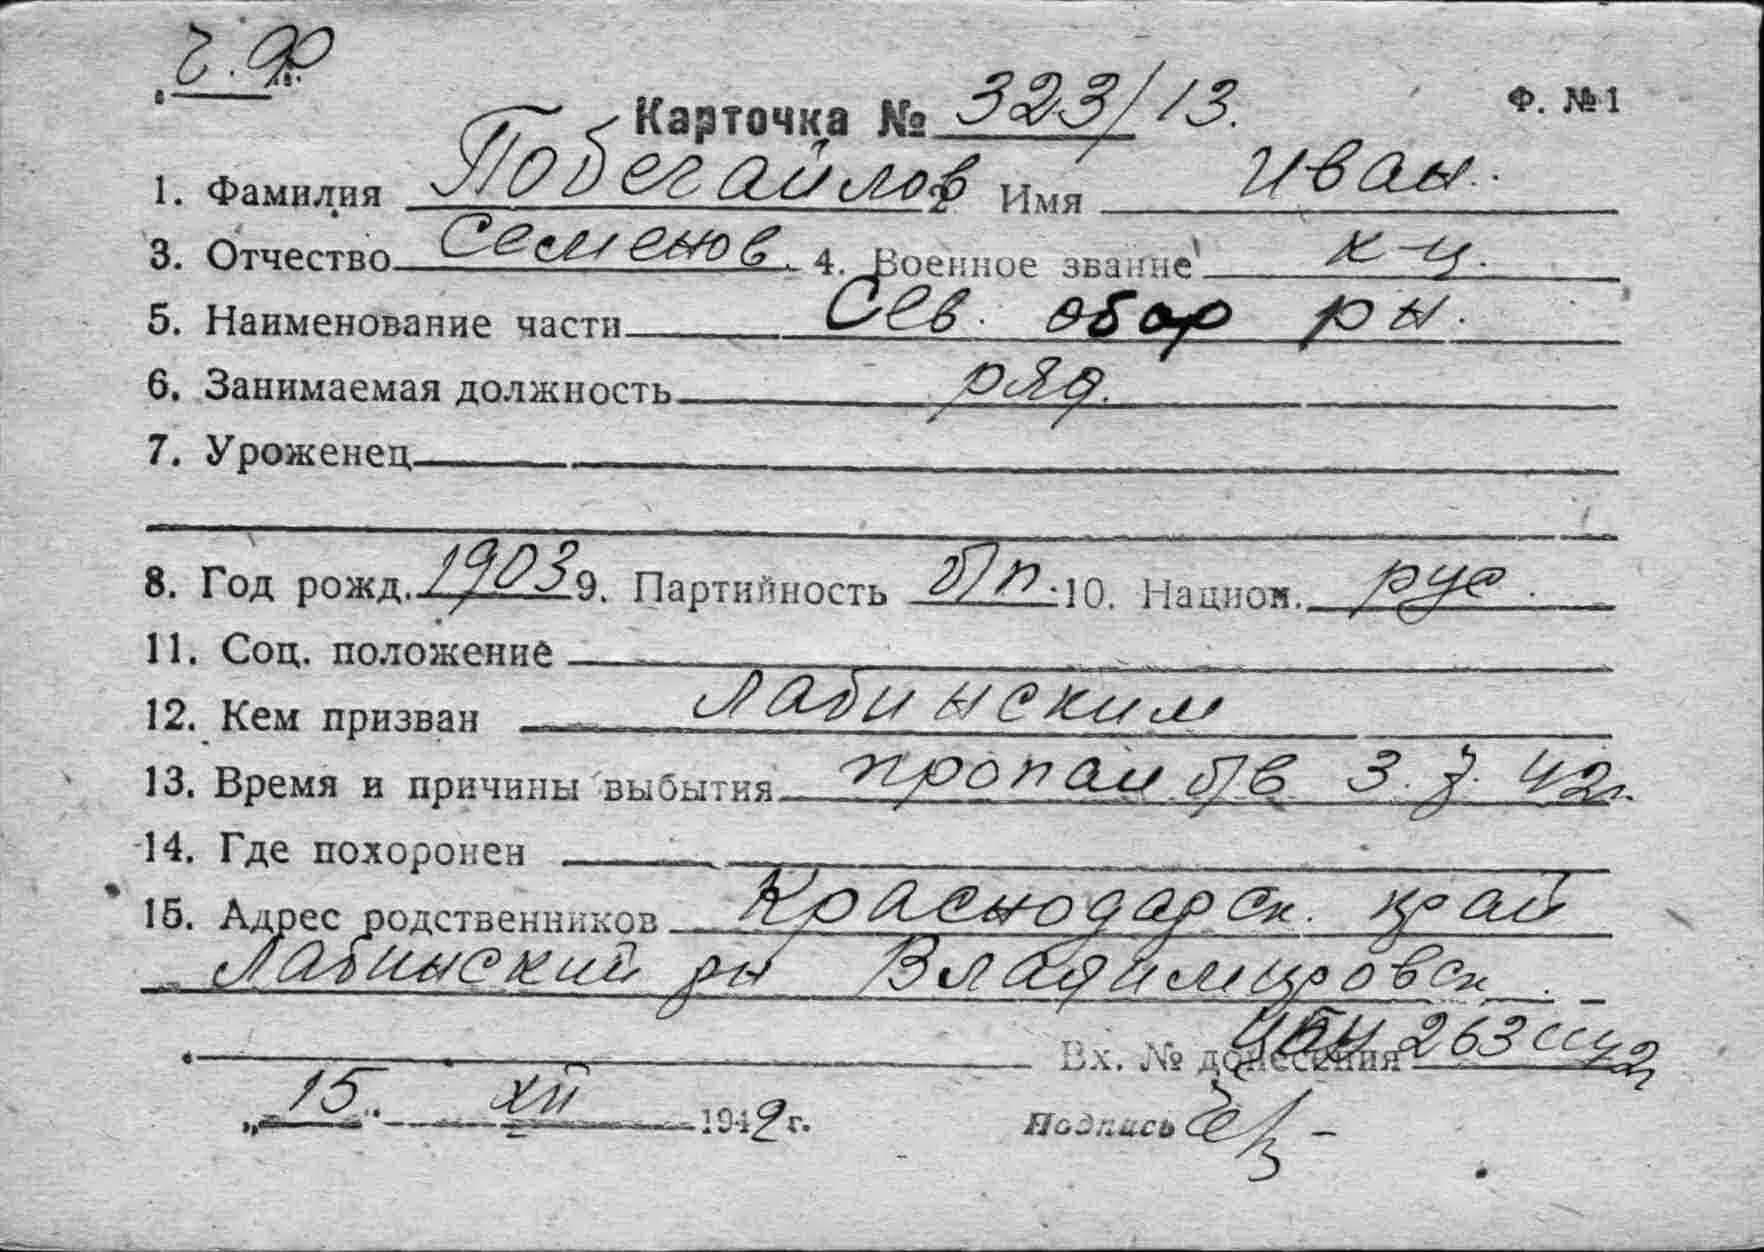 Ч.Ф
Карточка № 323/13. Ф. №1
1. Фамилия Побегайлов 2 Имя Иван.
3. Отчество Семенов. 4. Военное звание к-ц.
5. Наименование части Сев. обор рн.
6. Занимаемая должность ряд.
7. Уроженец
8. Год рожд. 1903 9. Партийность б/п. 10. Национ. рус.
11. Соц. положение
12. Кем призван Лабинским
13. Время и причины выбытия пропал б/в 3.7.42г.
14. Где похоронен
15. Адрес родственников Краснодарск. край
Лабинский рн Владимировск.
Вх. № донесения 263
„15" XII 1942 г. Подпись